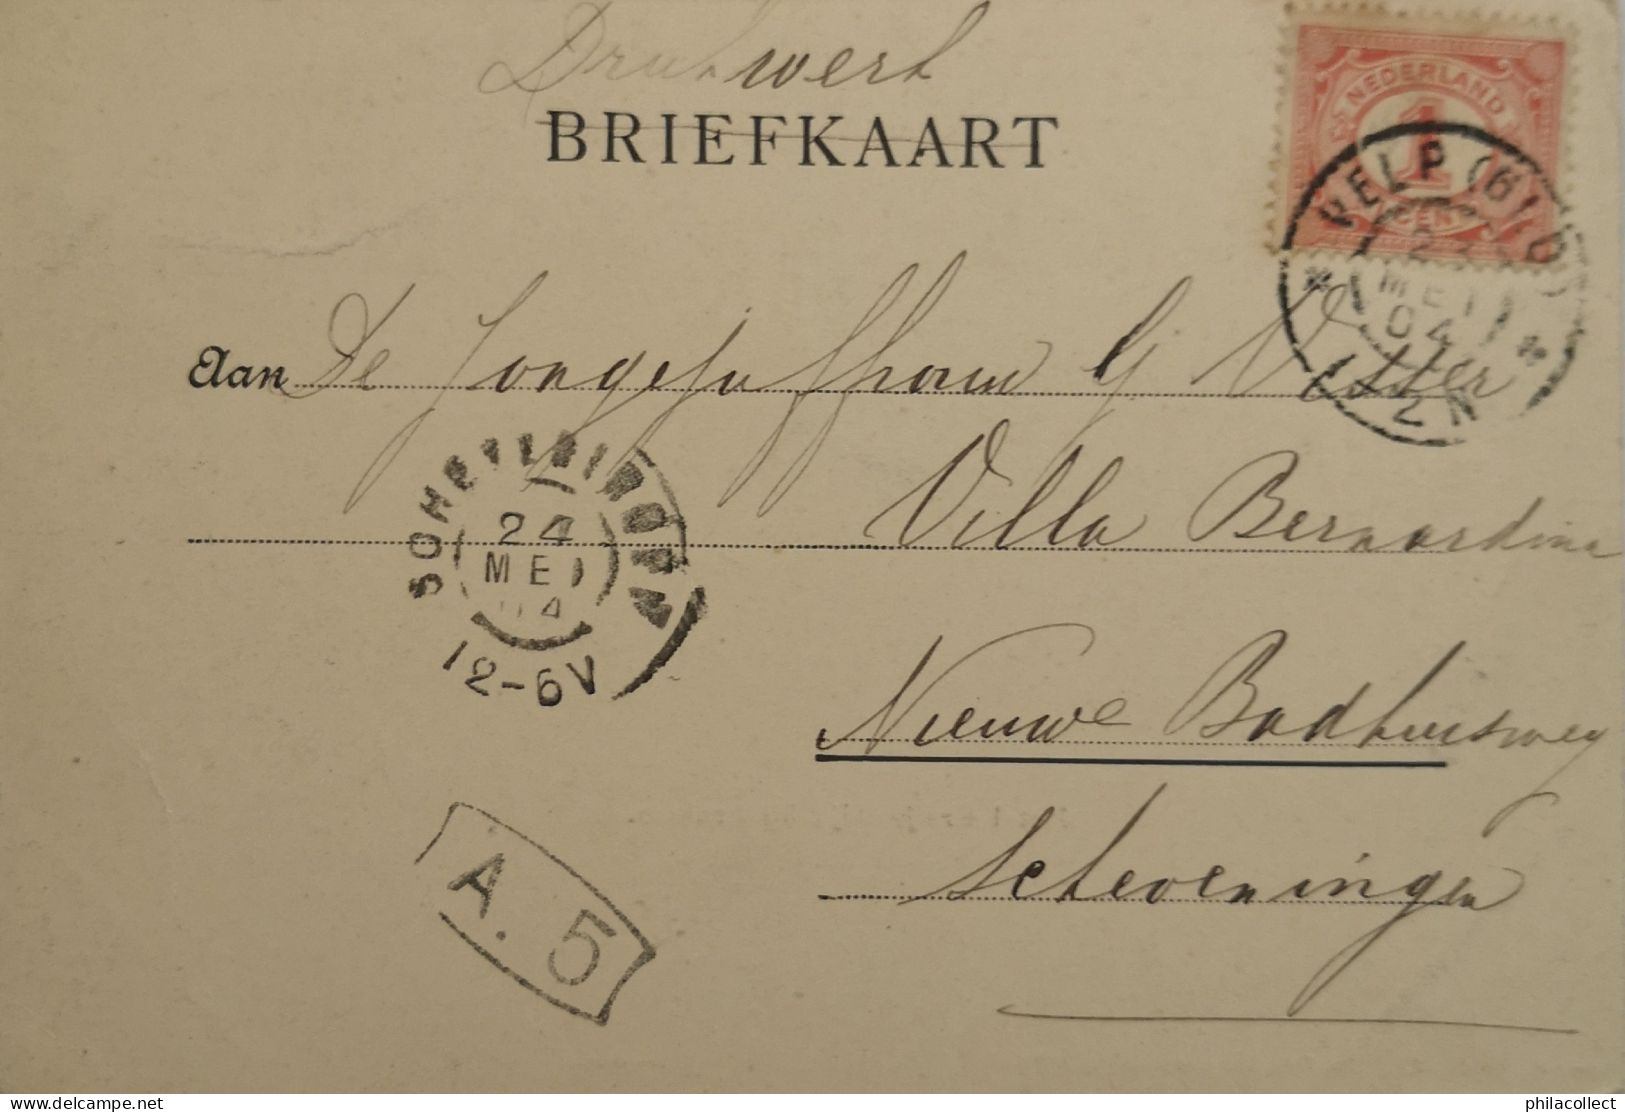 Drukwerk
BRIEFKAART
NEDERLAND
1
CENT
VELP (GLD)
23
MEI
04
1-2N
Aan De Jongejuffrouw G Visser
Villa Bernardina
SCHEVENINGEN
24
MEI
04
12-6V
Nieuwe Badhuisweg
Scheveningen
A. 5
philacollect